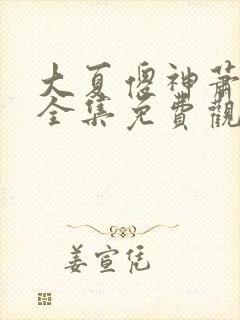 大夏傻神蕭
全集免費觀
姜宣凭